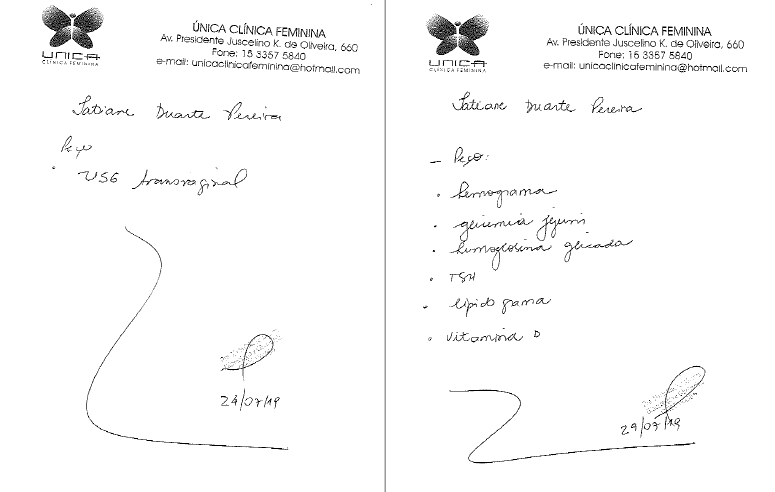 UNICA
CLÍNICA FEMININA
ÚNICA CLÍNICA FEMININA
Av. Presidente Juscelino K. de Oliveira, 660
Fone: 15 3357 5840
e-mail: unicaclinicafeminina@hotmail.com
Tatiane Duarte Pereira
Peço
• USG transvaginal
24/07/19
UNICA
CLÍNICA FEMININA
ÚNICA CLÍNICA FEMININA
Av. Presidente Juscelino K. de Oliveira, 660
Fone: 15 3357 5840
e-mail: unicaclinicafeminina@hotmail.com
Tatiane Duarte Pereira
– Peço:
• hemograma
• glicemia jejum
• hemoglobina glicada
• TSH
• lipidograma
• vitamina D
29/07/19